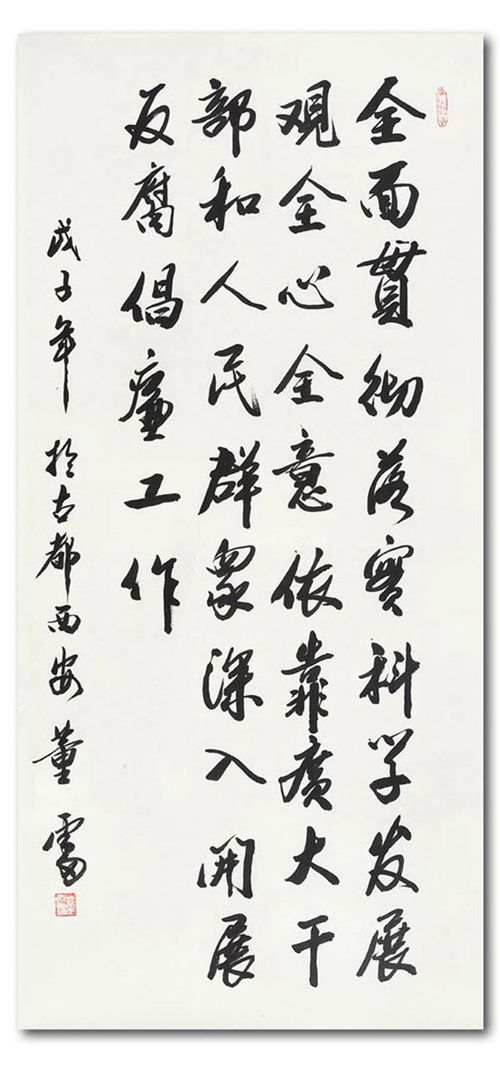 全面貫彻落實科学发展
观全心全意依靠廣大干
部和人民群众深入開展
反腐倡廉工作
戊子年 於古都西安 董雷